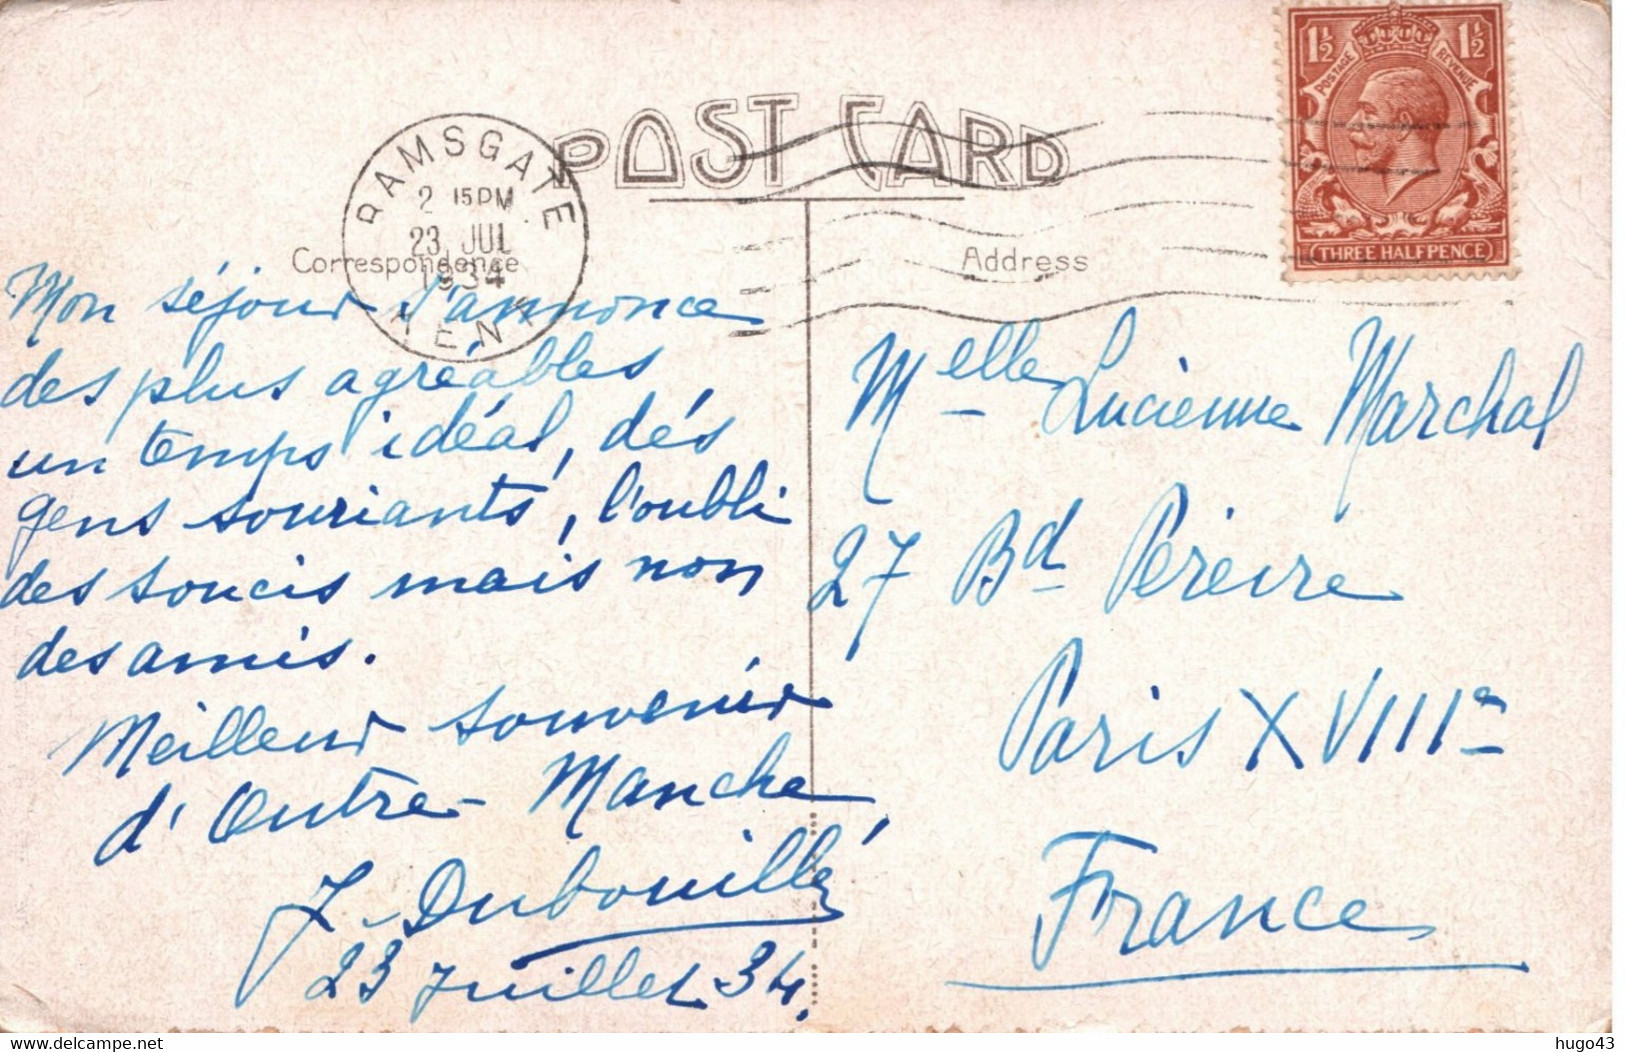 POST CARD
1½ 1½
POSTAGE REVENUE
THREE HALFPENCE
RAMSGATE
2 15 PM
23 JUL
1934
KENT
Correspondence
Mon séjour s'annonce
des plus agréables
un temps idéal, dés
gens souriants, l'oubli
des soucis mais non
des amis.
Meilleur souvenir
d'Outre-Manche
J. Dubouillé
23 Juillet 34.
Address
Melle Lucienne Marchal
27 Bd Péreire
Paris XVIIIe
France
hugo43